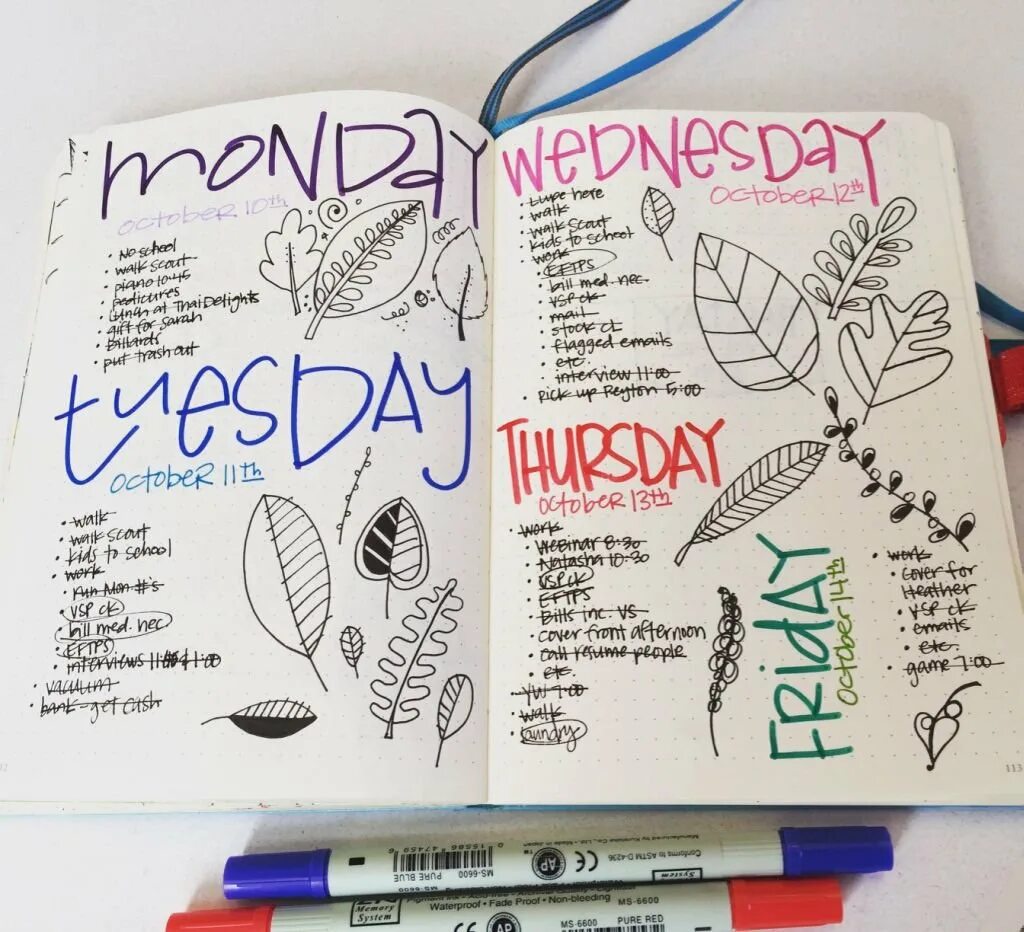 MONDAY
OCTOBER 10th
• NO school
• walk scout
• piano 10:45
• pedicures
• Lunch at Thai Delights
• gift for Sarah
• Billards
• put trash out
tuesDAY
OCTOBER 11th
• walk
• walk scout
• kids to school
• work
• run Mon #'s
• VSP ck
• bill med. nec
• EFTPS
• interviews 1:00
• vacuum
• bank - get cash
WEDNESDAY
OCTOBER 12th
• Lupe here
• walk
• walk scout
• kids to school
• work
• EFTPS
• bill med. nec.
• VSP ck
• mail
• stock CL
• flagged emails
• etc.
• interview 11:00
• pick up Peyton 5:00
THURSDAY
OCTOBER 13th
• work
• Webinar 8:30
• Natasha 10:30
• VSP ck
• EFTPS
• Bills inc. VS
• cover front afternoon
• call resume people
• etc.
• YW 7:00
• walk
• laundry
FRIDAY
OCTOBER 14th
• work
• cover for
Heather
• VSP ck
• emails
• etc.
• game 7:00
113
Manufactured by Kuretake Co., Ltd. • Made in Japan
Conforms to ASTM D-4236
0 15586 47459 6
MS-6600 PURE BLUE
AP
CE
System
MS-6600
Memory
System
Waterproof • Fade Proof • Non-bleeding
MS-6600 PURE RED
CE
AP